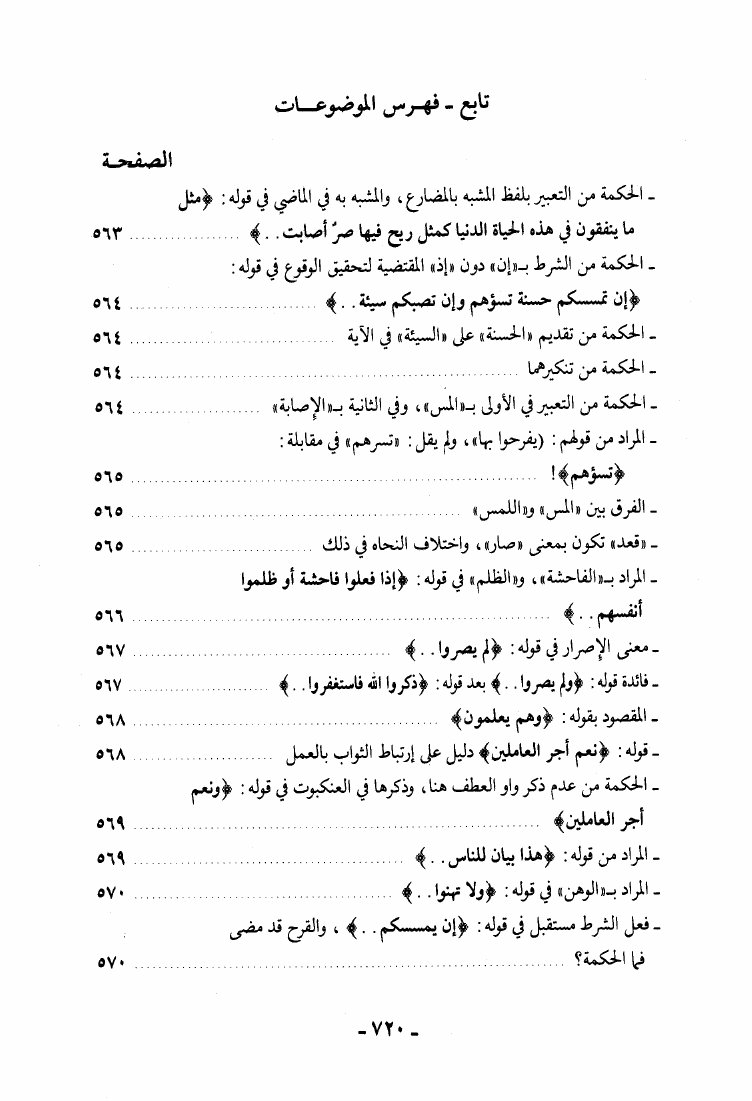 تابع ـ فهرس الموضوعات
الصفحة
ـ الحكمة من التعبير بلفظ المشبه بالمضارع، والمشبه به في الماضي في قوله: ﴿مثل
ما ينفقون في هذه الحياة الدنيا كمثل ريح فيها صرٌ أصابت . .﴾ .................... ٥٦٣
ـ الحكمة من الشرط بـ«إن» دون «إذ» المقتضية لتحقيق الوقوع في قوله:
﴿إن تمسسكم حسنة تسؤهم وإن تصبكم سيئة . .﴾ .................... ٥٦٤
ـ الحكمة من تقديم «الحسنة» على «السيئة» في الآية .................... ٥٦٤
ـ الحكمة من تنكيرهما .................... ٥٦٤
ـ الحكمة من التعبير في الأولى بـ«المس»، وفي الثانية بـ«الإصابة» .................... ٥٦٤
ـ المراد من قولهم: (يفرحوا بها»، ولم يقل: «تسرهم» في مقابلة:
﴿تسؤهم﴾! .................... ٥٦٥
ـ الفرق بين «المس» و«اللمس» .................... ٥٦٥
ـ «قعد» تكون بمعنى «صار»، واختلاف النحاه في ذلك .................... ٥٦٥
ـ المراد بـ«الفاحشة»، و«الظلم» في قوله: ﴿إذا فعلوا فاحشة أو ظلموا
أنفسهم . .﴾ .................... ٥٦٦
ـ معنى الإصرار في قوله: ﴿لم يصروا . .﴾ .................... ٥٦٧
ـ فائدة قوله: ﴿ولم يصروا . .﴾ بعد قوله: ﴿ذكروا الله فاستغفروا . .﴾ .................... ٥٦٧
ـ المقصود بقوله: ﴿وهم يعلمون﴾ .................... ٥٦٨
ـ قوله: ﴿نعم أجر العاملين﴾ دليل على إرتباط الثواب بالعمل .................... ٥٦٨
ـ الحكمة من عدم ذكر واو العطف هنا، وذكرها في العنكبوت في قوله: ﴿ونعم
أجر العاملين﴾ .................... ٥٦٩
ـ المراد من قوله: ﴿هذا بيان للناس . .﴾ .................... ٥٦٩
ـ المراد بـ«الوهن» في قوله: ﴿ولا تهنوا . .﴾ .................... ٥٧٠
ـ فعل الشرط مستقبل في قوله: ﴿إن يمسسكم . .﴾، والقرح قد مضى
فما الحكمة؟ .................... ٥٧٠
ـ ٧٢٠ ـ